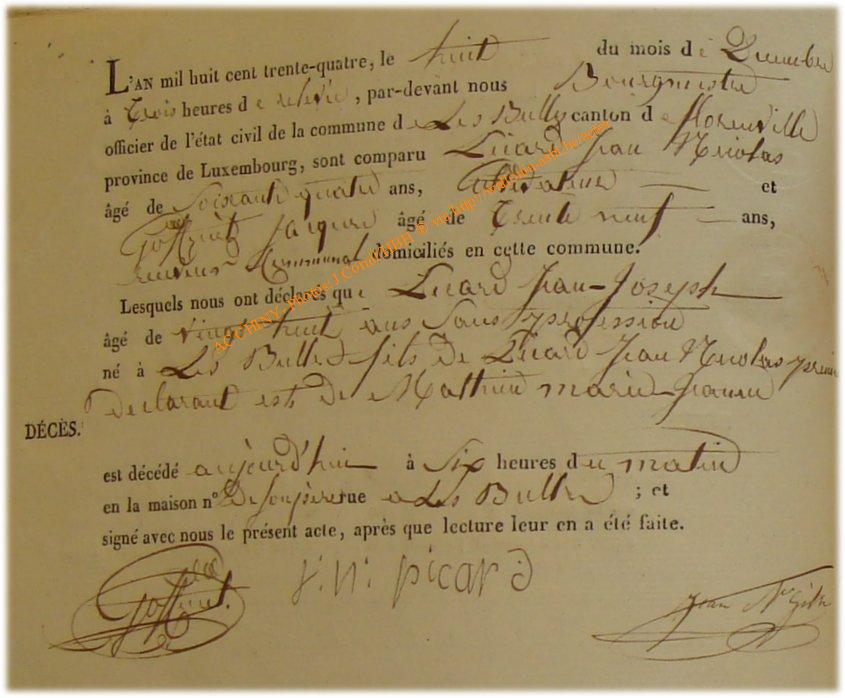 L'AN mil huit cent trente-quatre, le huit du mois de Decembre
à trois heures de relevée, par-devant nous Bourgmestre
officier de l'état civil de la commune de Les Bulles canton de florenville
province de Luxembourg, sont comparu Picard Jean Nicolas
âgé de Soixante quatre ans, et
Goffinet Jacques âgé de Trente neuf ans,
receveur Communal domiciliés en cette commune.
Lesquels nous ont déclarés que Picard Jean-Joseph
âgé de vingt huit ans Sans profession
né à Les Bulles fils de Picard Jean Nicolas premier
declarant et de Mathieu marie Jeanne
DÉCÈS.
est décédé aujourd'hui à Six heures du matin
en la maison n° De son père rue a Les Bulles ; et
signé avec nous le présent acte, après que lecture leur en a été faite.
Goffinet. j. N. picard Jean Ns